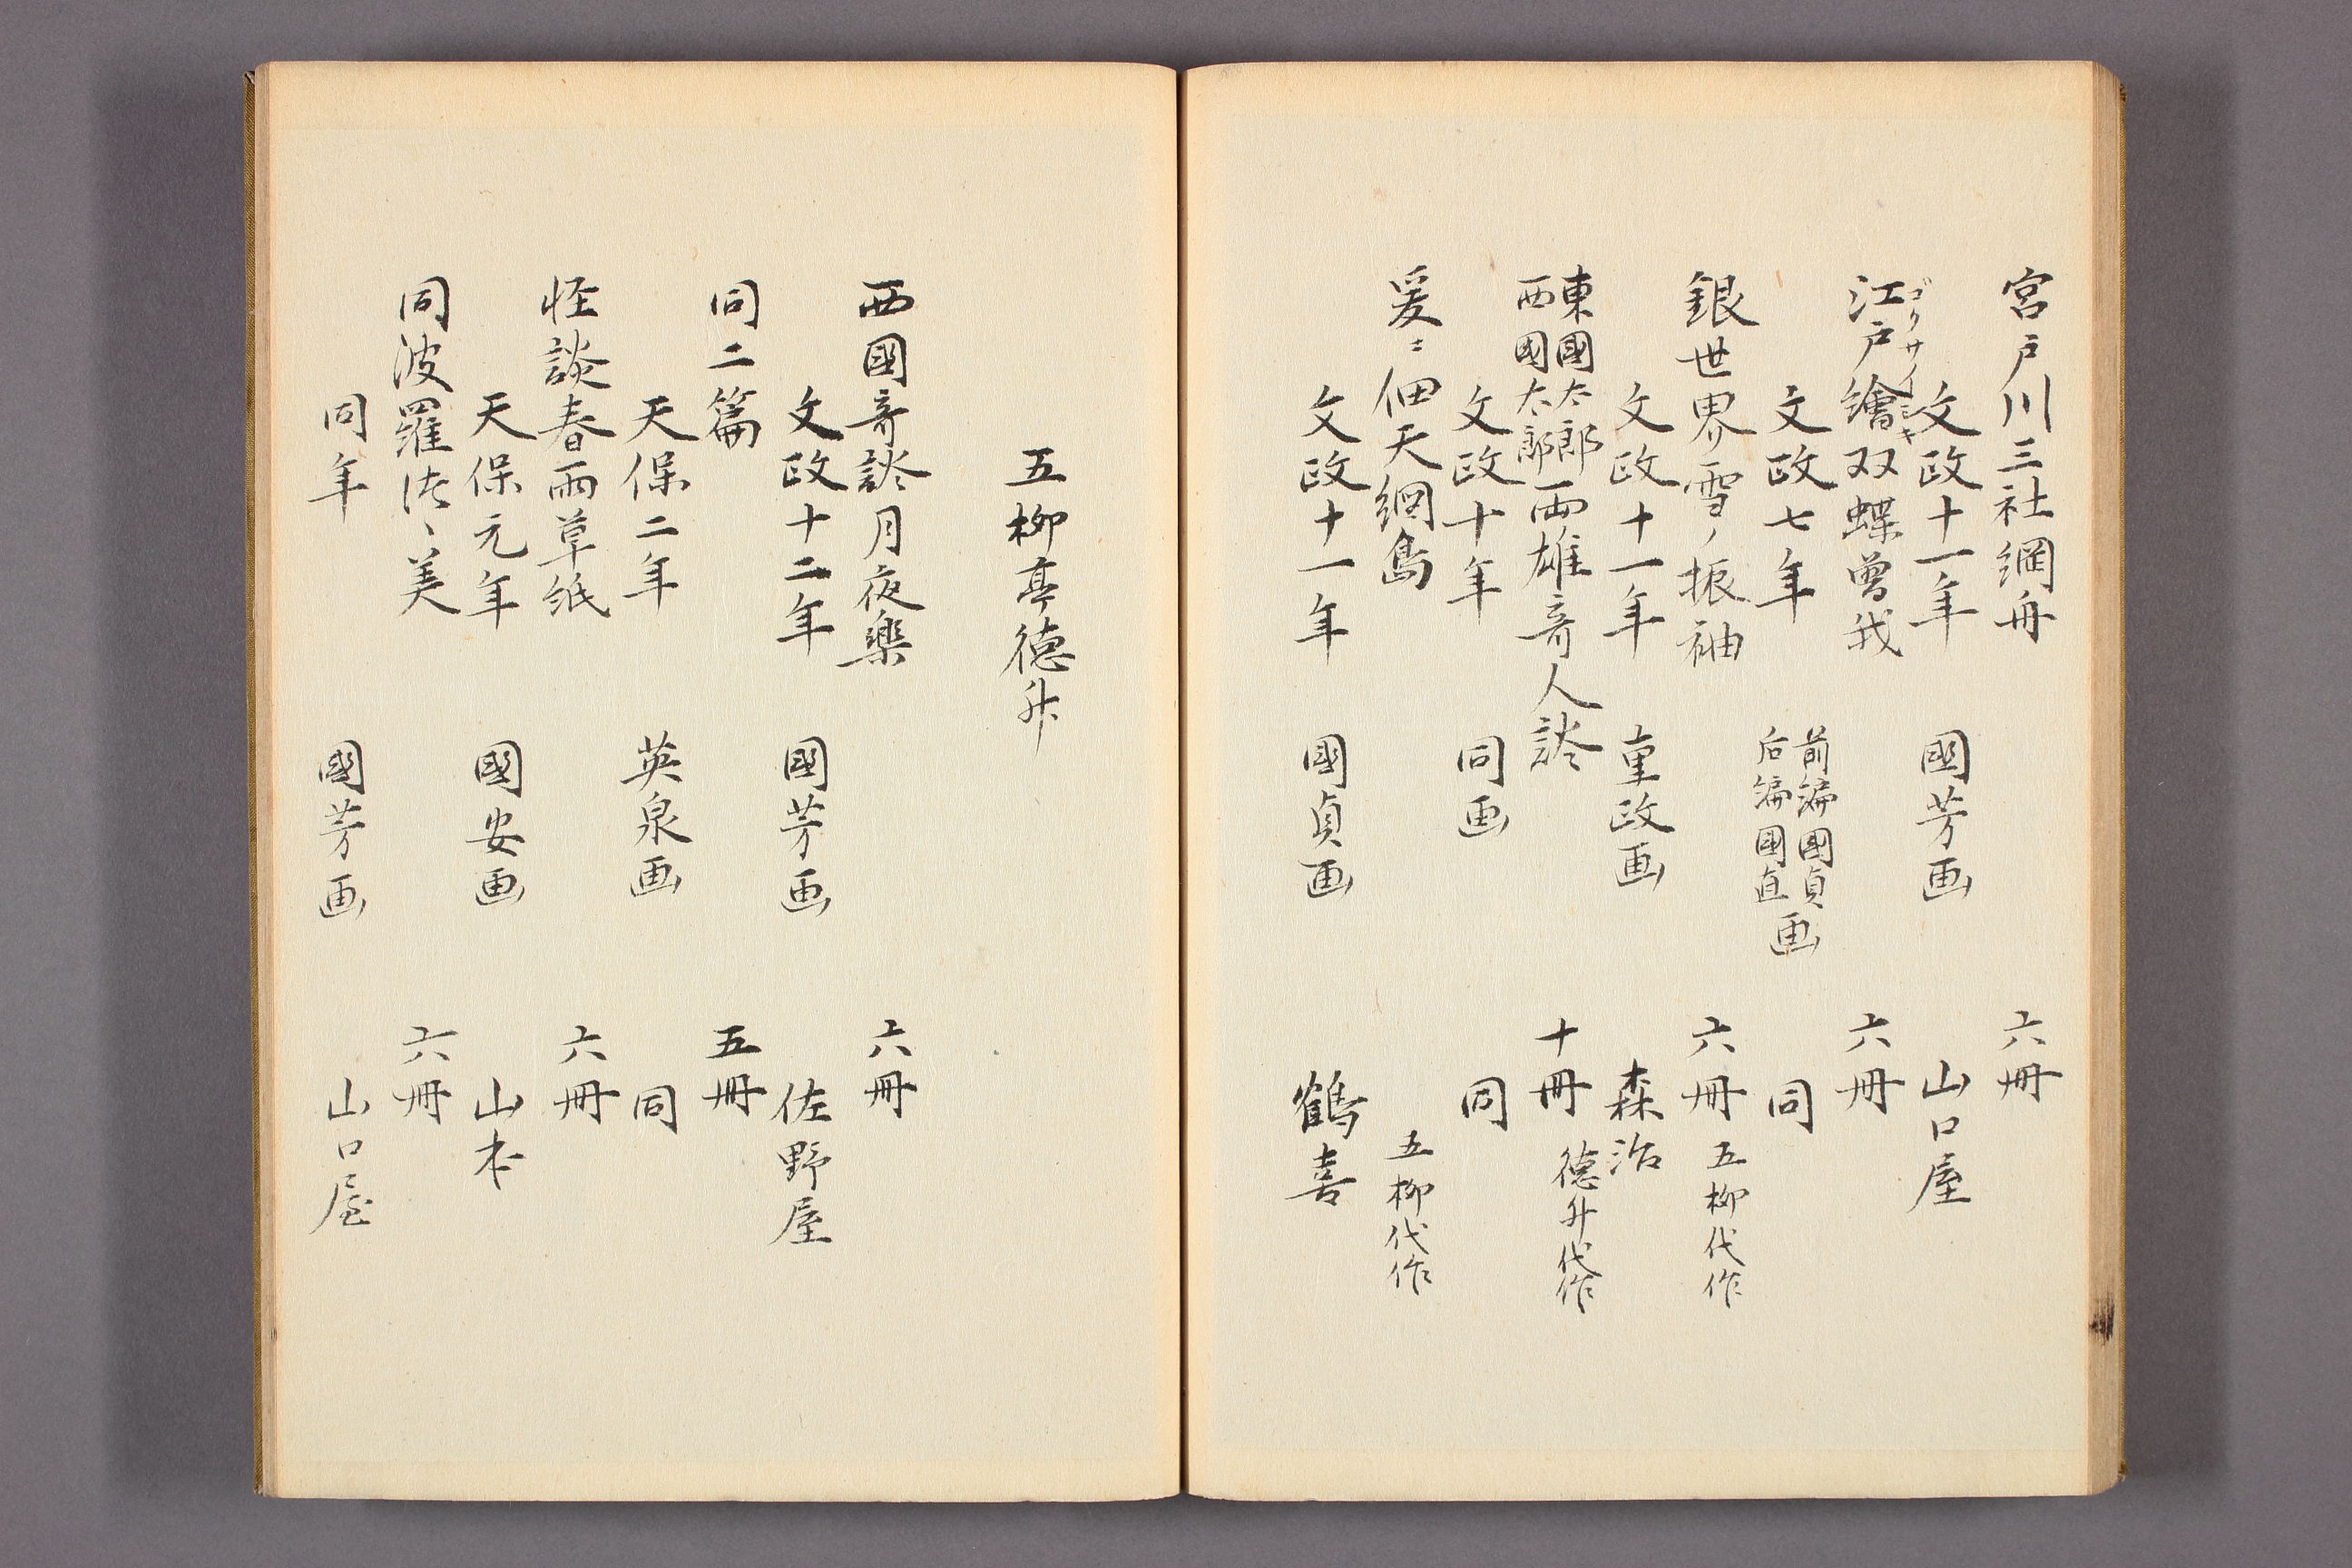 宮戸川三社網舟　六冊
文政十一年　國芳画　山口屋
江戸繪双蝶曽我　六冊
ゴクサイシキ
文政七年　前編國貞后編國直画　同
銀世界雪ノ振袖　六冊　五柳代作
文政十一年　重政画　森治
東國太郎
西國太郎両雄奇人談　十冊　徳升代作
文政十年　同画　同
爰ニ佃天網島　五柳代作
文政十一年　國貞画　鶴喜
五柳亭徳升
西國奇談月夜樂　六冊
文政十二年　國芳画　佐野屋
同二篇　五冊
天保二年　英泉画　同
怪談春雨草紙　六冊
天保元年　國安画　山本
同波羅　美　六冊
同年　國芳画　山口屋